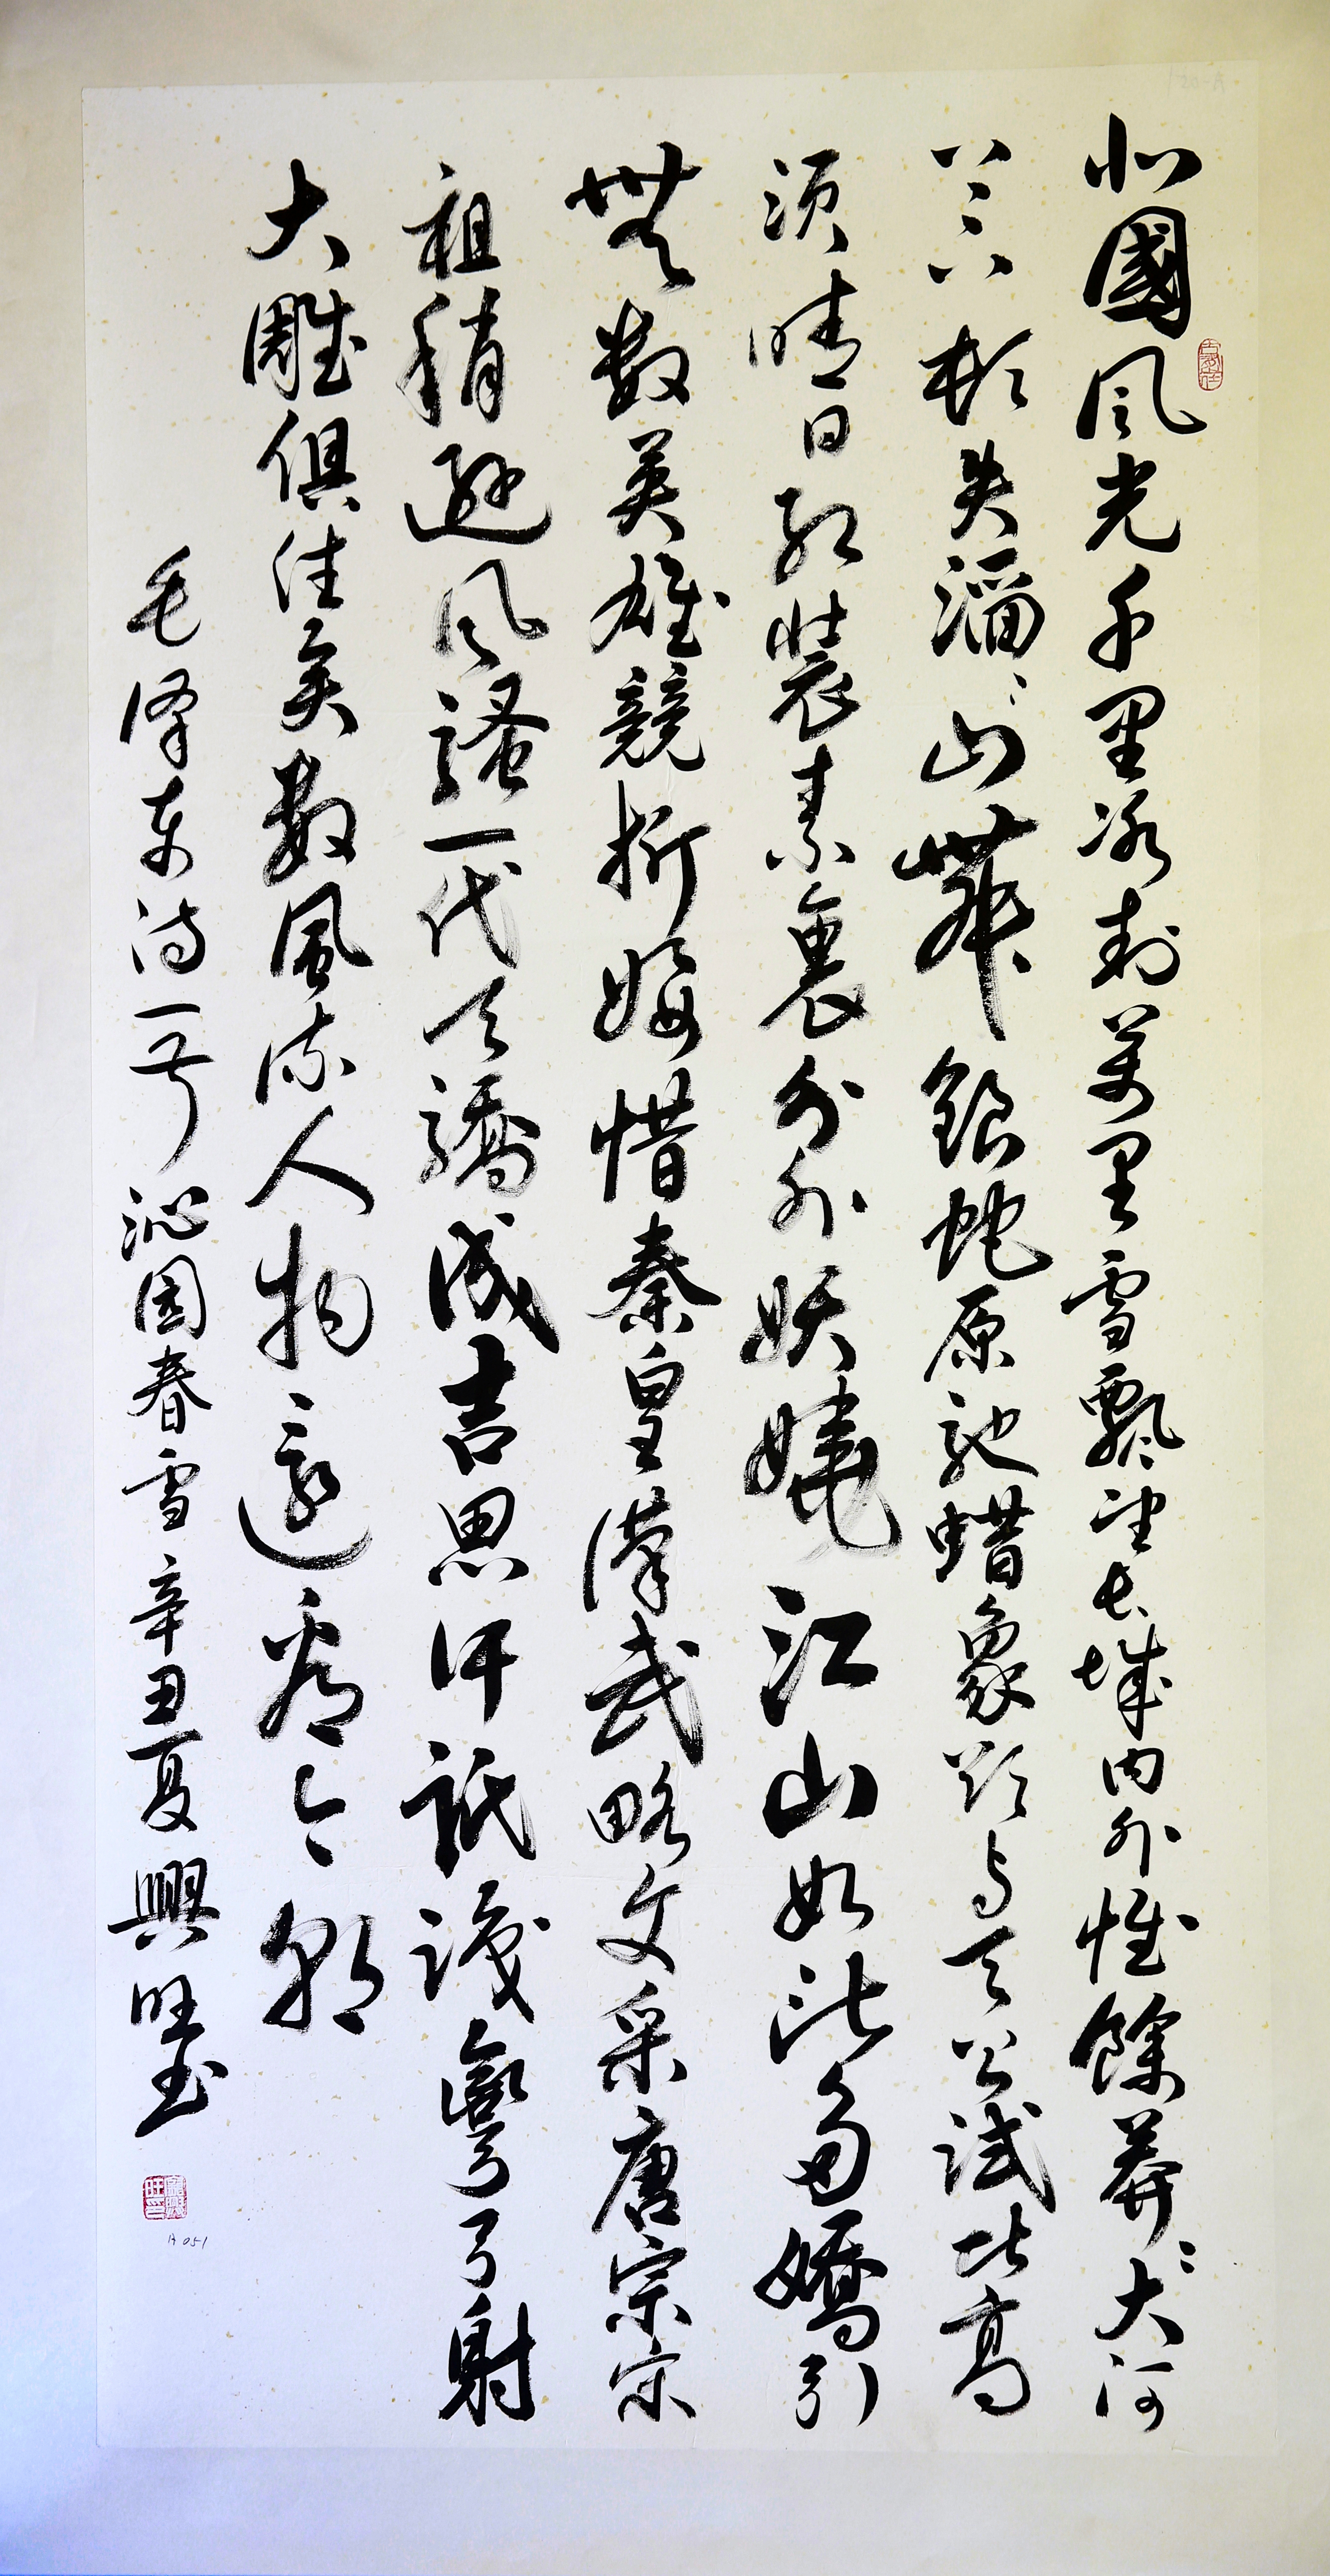 北國风光千里冰封萬里雪飄望長城内外惟餘莽〻大河
上下頓失滔〻山舞銀蛇原馳蜡象欲与天公試比高
須晴日紅裝素裹分外妖嬈江山如此多嬌引
無数英雄競折腰惜秦皇漢武略文采唐宗宋
祖稍遜风騷一代天驕成吉思汗祇識彎弓射
大雕俱往矣數風流人物還看今朝
毛泽东诗一首沁园春雪辛丑夏興旺
A051